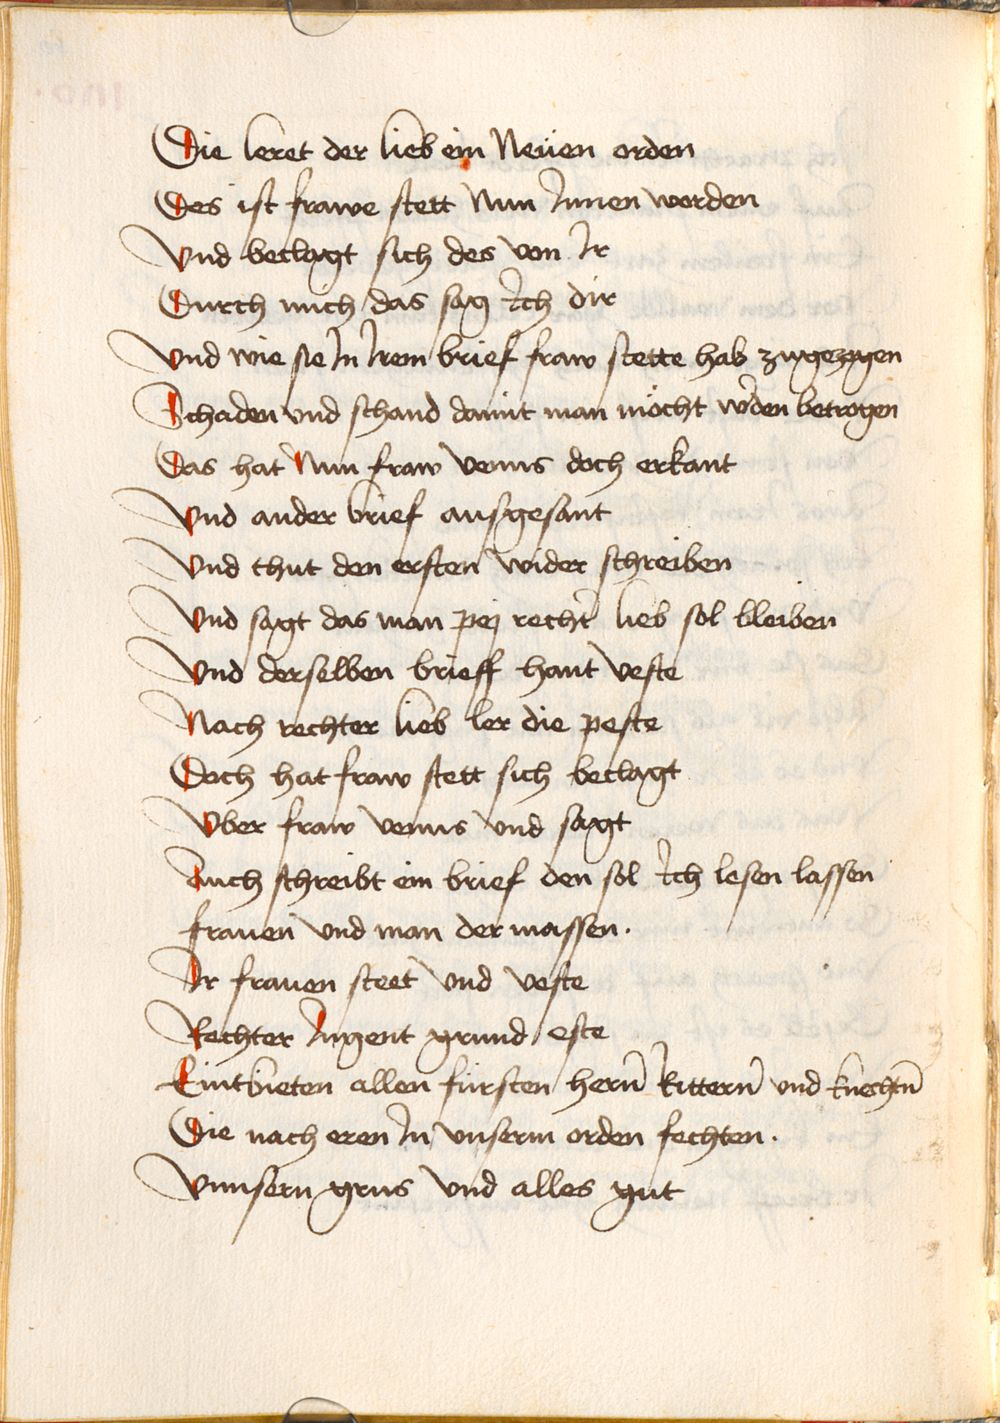 Die leret der lieb ein Neüen orden
Des ist frawe stett Nun Innen worden
Vnd beclagt sich des von Ir
Durch mich das sag Ich dir
Vnd wie sie In Irem brief fraw stette hab zugezogen
Schaden vnd schand damit man möcht w'den betrogen
Das hat Nun fraw venus doch erkant
Vnd ander brief ausgesant
Vnd thut den ersten wider schreiben
Vnd sagt das man pej recht' lieb sol bleiben
Vnd derselben brieff hant veste
Nach rechter lieb ler die peste
Doch hat fraw stett sich beclagt
Vber fraw venus vnd sagt
Auch schreibt ein brief den sol Ich lesen lassen
frauen vnd man der massen.
Ir frauen steet vnd veste
Rechter Jugent grund este
Eintbieten allen fürsten hern̄ Rittern̄ vnd knechtn̄
Die nach eren In vnserm orden fechten.
Vnnsern grus vnd alles gut